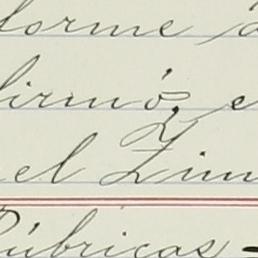 forme a
firmó, e
el Zim
Rúbricas -